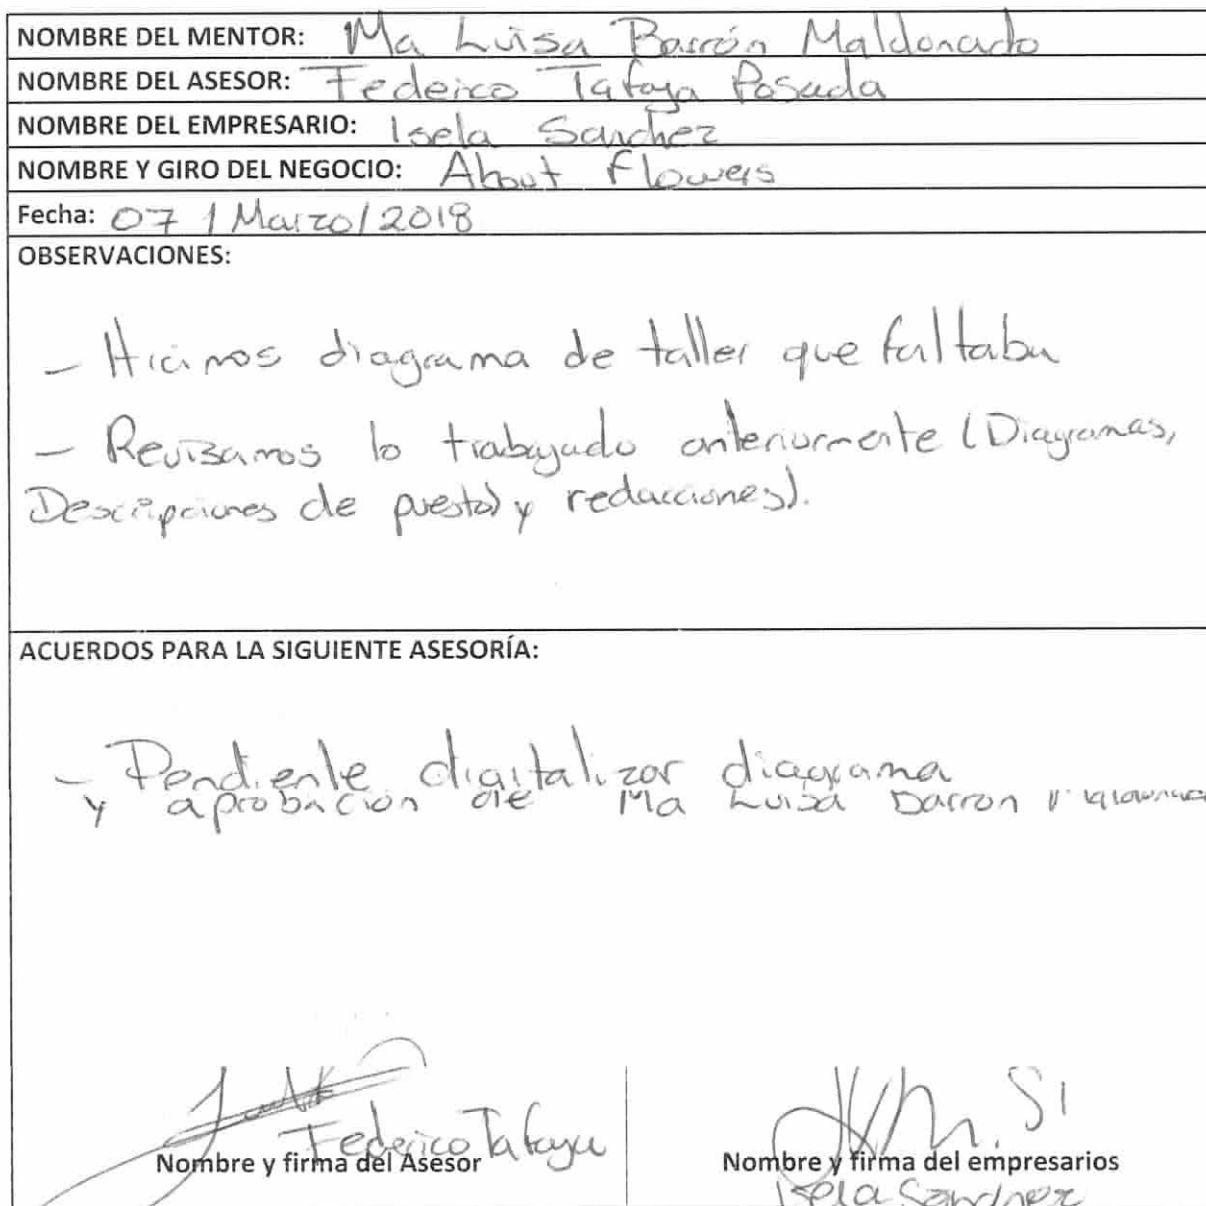 NOMBRE DEL MENTOR: Ma Luisa Barrón Maldonado
NOMBRE DEL ASESOR: Federico Tafoya Posada
NOMBRE DEL EMPRESARIO: Isela Sanchez
NOMBRE Y GIRO DEL NEGOCIO: About Flowers
Fecha: 07 / Marzo / 2018
OBSERVACIONES:
- Hicimos diagrama de taller que faltaba
- Revisamos lo trabajado anteriormente (Diagramas,
Descripciones de puesto) y redacciones).
ACUERDOS PARA LA SIGUIENTE ASESORÍA:
- Pendiente digitalizar diagrama
y aprobación de Ma Luisa Barron
Federico Tafoya
Nombre y firma del Asesor
Nombre y firma del empresarios
Isela Sanchez